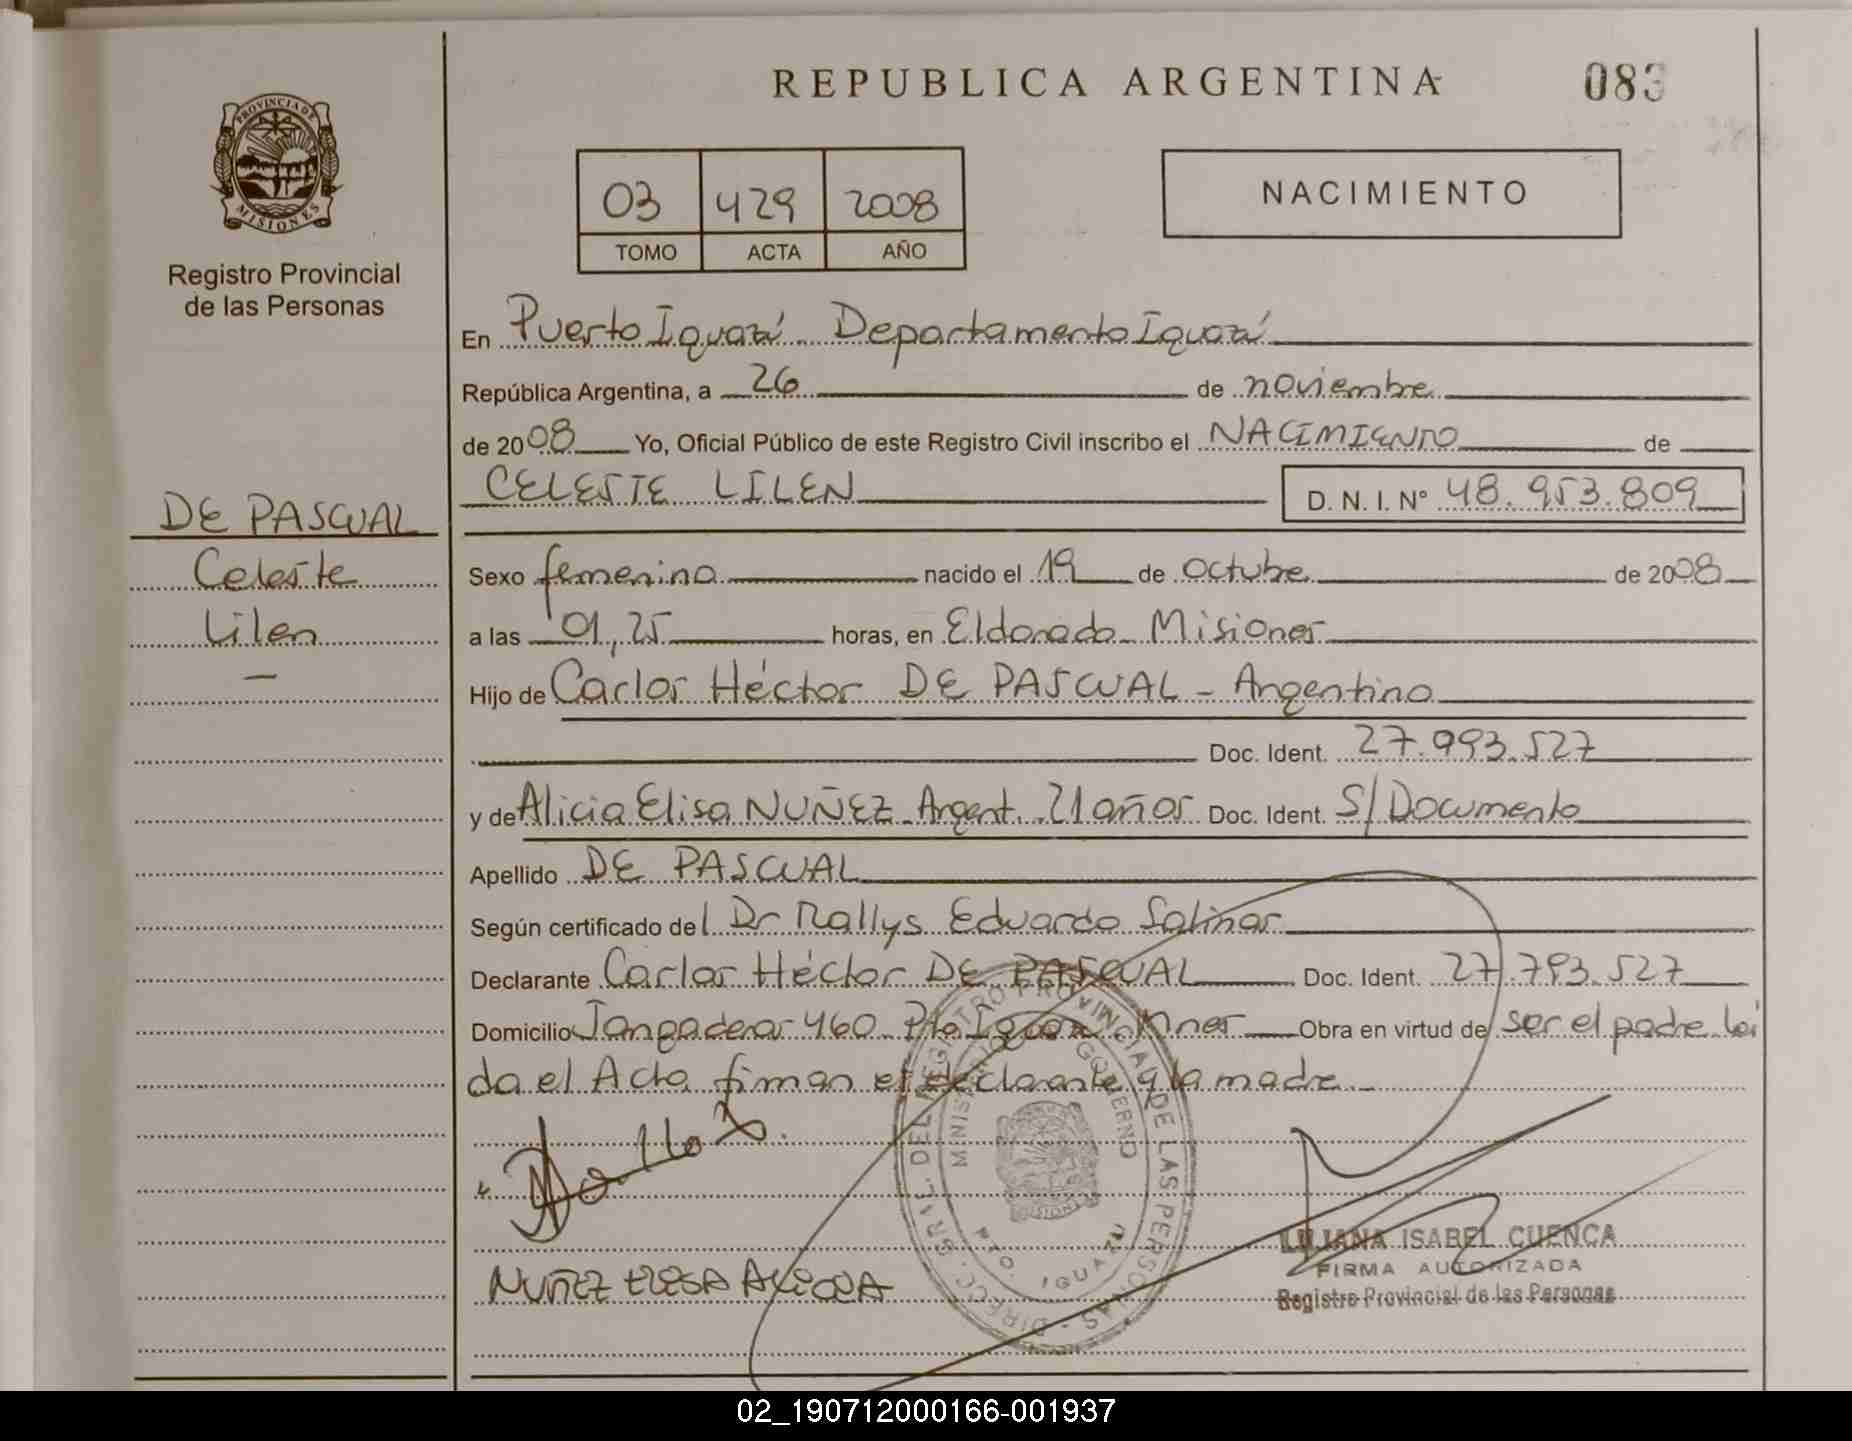 REPUBLICA ARGENTINA
083
PROVINCIA DE
MISIONES
Registro Provincial
de las Personas
03 429 2008
TOMO ACTA AÑO
NACIMIENTO
En Puerto Iguazú Departamento Iguazú
República Argentina, a 26 de noviembre
de 2008 Yo, Oficial Público de este Registro Civil inscribo el NACIMIENTO de
CELESTE LILEN D. N. I. Nº 48.953.809
DE PASCUAL
Celeste
Lilen
—
Sexo femenino nacido el 19 de octubre de 2008
a las 01,25 horas, en Eldorado Misiones
Hijo de Carlos Héctor DE PASCUAL - Argentino
Doc. Ident. 27.993.527
y de Alicia Elisa NUÑEZ Argent. 21 años Doc. Ident. S/Documento
Apellido DE PASCUAL
Según certificado del Dr Rallys Eduardo Salinas
Declarante Carlos Héctor DE PASCUAL Doc. Ident. 27.793.527
Domicilio Jangadera 460 Pto Iguazú Mnes Obra en virtud de ser el padre lei
da el Acta firman el declarante y la madre
NUÑEZ ELISA ALICIA
DIRECC. GRAL. DEL REGISTRO PROVINCIAL DE LAS PERSONAS
GOBIERNO
MISIONES
PTO. IGUAZU
LUJANA ISABEL CUENCA
FIRMA AUTORIZADA
Registro Provincial de las Personas
02_190712000166-001937